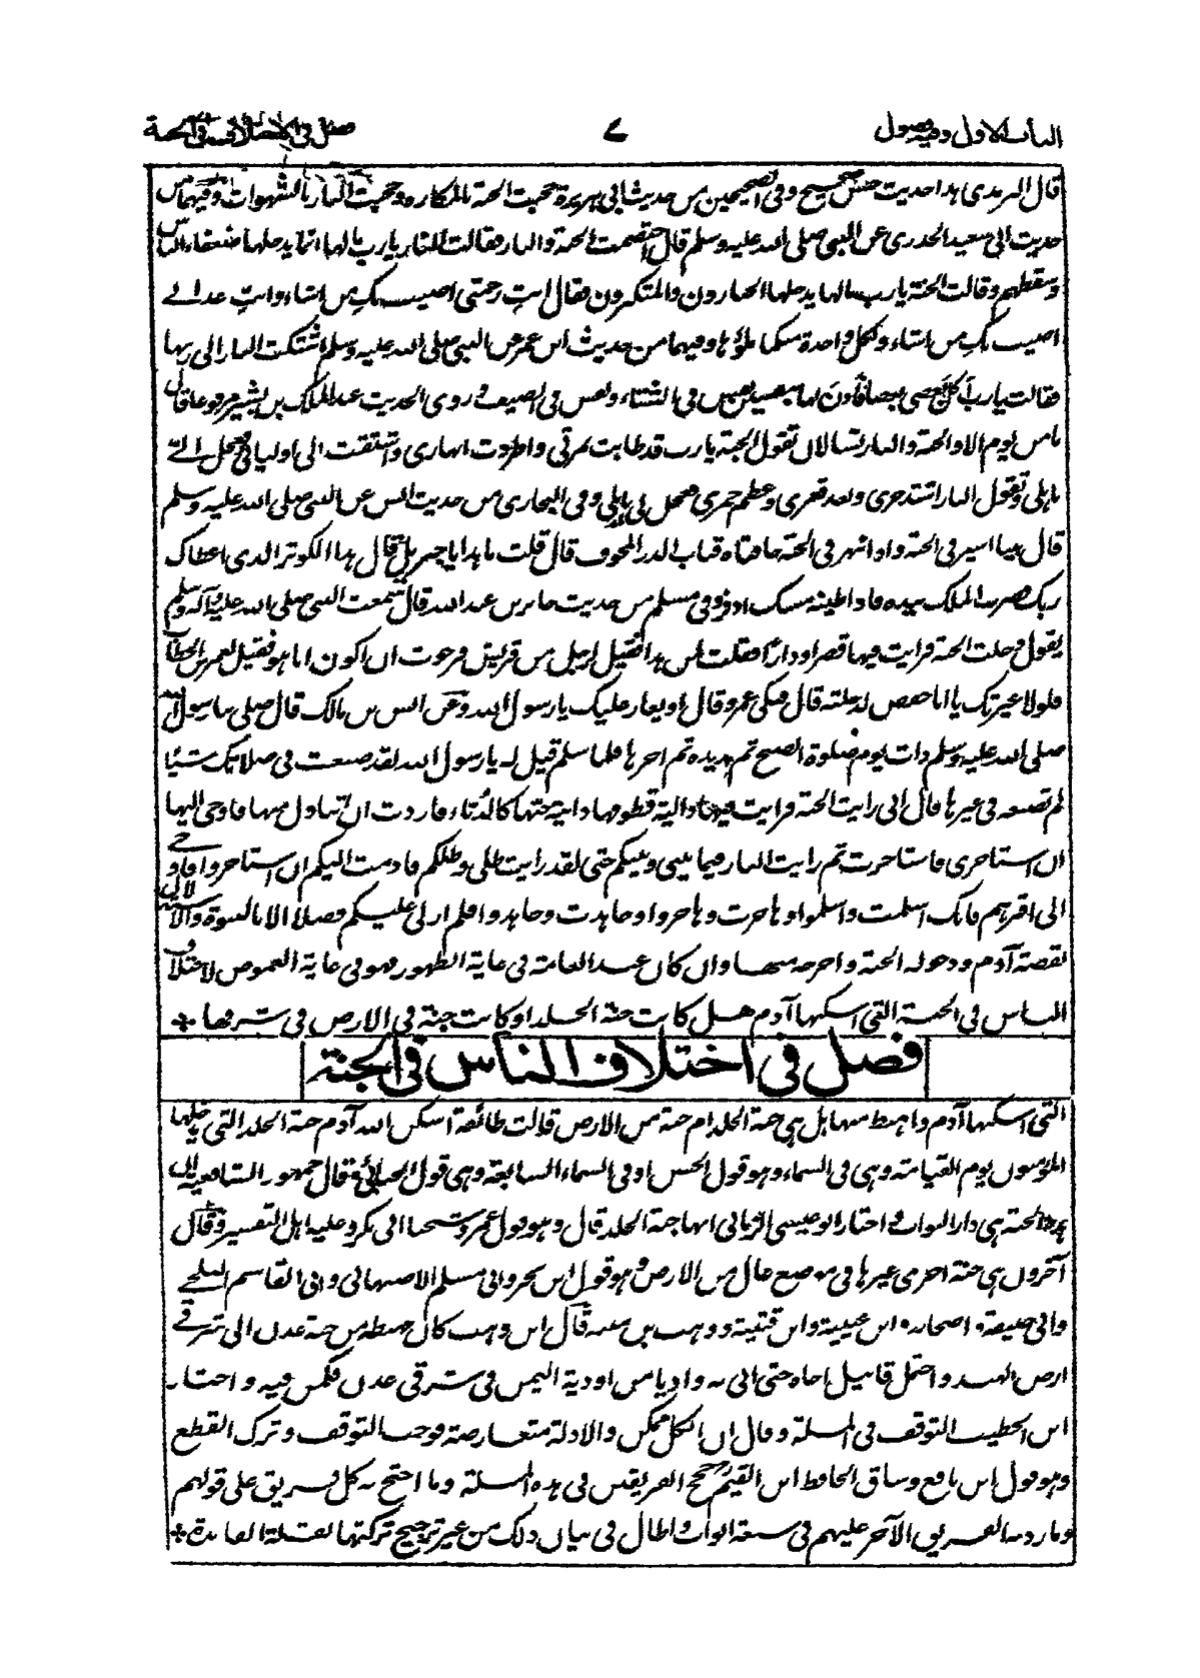 الباب الاول وفيه فصول
٧
فصل في الاختلاف في الجنة
قال الترمذي هذا حديث حسن صحيح وفي الصحيحين من حديث ابي هريرة حجبت الجنة بالمكاره وحجبت النار بالشهوات وفيهما من
حديث ابي سعيد الخدري عن النبي صلى الله عليه وسلم قال اختصمت الجنة والنار فقالت النار يارب مالها انما يدخلها ضعفاء الناس
وسقطهم وقالت الجنة يارب مالها يدخلها الجبارون والمتكبرون فقال انتِ رحمتي اصيب بكِ من اشاء وانتِ عذابي
اصيب بكِ من اشاء ولكل واحدة منكما ملؤها وفيهما من حديث ابن عمر عن النبي صلى الله عليه وسلم اشتكت النار الى ربها
فقالت يارب اكل بعضي بعضا فأذن لها بنفسين نفس في الشتاء ونفس في الصيف وروى الحديث عبد الملك بن بشير مرفوعا قال
ما من يوم الا والجنة والنار يسألان تقول الجنة يارب قد طابت ثمرتي واطردت انهاري واشتقت الى اوليائي فعجل الي
باهلي وتقول النار اشتد حري وبعد قعري وعظم جمري فعجل لي باهلي وفي البخاري من حديث انس عن النبي صلى الله عليه وسلم
قال بينا اسير في الجنة واذا نهر في الجنة حافتاه قباب الدر المجوف قال قلت ما هذا يا جبريل قال هذا الكوثر الذي اعطاك
ربك فضرب الملك بيده فاذا طينه مسك اذفر وفي مسلم من حديث جابر بن عبد الله قال سمعت النبي صلى الله عليه وآله وسلم
يقول دخلت الجنة فرايت فيها قصرا ودارا فقلت لمن هذا فقيل لرجل من قريش فرجوت ان اكون انا هو فقيل لعمر بن الخطاب
فلولا غيرتك يا ابا حفص لدخلته قال فبكى عمر وقال او يغار عليك يا رسول الله وعن انس بن مالك قال صلى بنا رسول الله
صلى الله عليه وسلم ذات يوم صلوة الصبح ثم مد يده ثم اخرها فلما سلم قيل له يا رسول الله لقد صنعت في صلاتك شيئا
لم تصنعه في غيرها قال اني رايت الجنة فرايت فيها دالية قطوفها دانية حبها كالدباء فاردت ان اتناول منها فاوحي اليها
ان استاخري فاستاخرت ثم رايت النار فيما بيني وبينكم حتى لقد رايت ظلي وظلكم فاومأت اليكم ان استاخروا فاوحي
الى اقرهم فانك اسلمت واسلموا وهاجرت وهاجروا وجاهدت وجاهدوا فلم ار لي عليكم فضلا الا بالنبوة والاستدلال
بقصة آدم ودخوله الجنة واخرجه منها وان كان عند العامة في غاية الظهور فهو في غاية الغموض لاختلاف
الناس في الجنة التي اسكنها آدم هل كانت جنة الخلد او كانت جنة في الارض في شرقها ✣
فصل في اختلاف الناس في الجنة
التي اسكنها آدم واهبط منها هل هي جنة الخلد ام جنة من الارض قالت طائفة اسكن الله آدم جنة الخلد التي يدخلها
المؤمنون يوم القيامة وهي في السماء وهو قول الحسن او في السماء السابعة وهي قول الجبائي وقال جمهور الشافعية ان
هذه الجنة هي دار الثواب واختار ابو عيسى الرماني انها جنة الخلد قال وهو قول عمرو وشيخنا ابي بكر وعليه اهل التفسير وقال
آخرون هي جنة اخرى غيرها في موضع عال من الارض وهو قول ابن بحر وابي مسلم الاصبهاني وابي القاسم البلخي
وابي حنيفة واصحابه وابن عيينة وابن قتيبة ووهب بن منبه قال ابن وهب كان مهبطه من جنة عدن الى شرقي
ارض الهند واحتمل قابيل اخاه حتى اتى به واديا من اودية اليمن في شرقي عدن فكمن فيه واختار
ابن الخطيب التوقف في المسئلة وقال ان الكل ممكن والادلة متعارضة فوجب التوقف وترك القطع
وهو قول ابن نافع وساق الحافظ ابن القيم حجج الفريقين في هذه المسئلة وما احتج به كل فريق على قولهم
وما رد به الفريق الآخر عليهم في سعة ابواب واطال في بيان ذلك من غير ترجيح تركتها لقلة الفائدة ✣